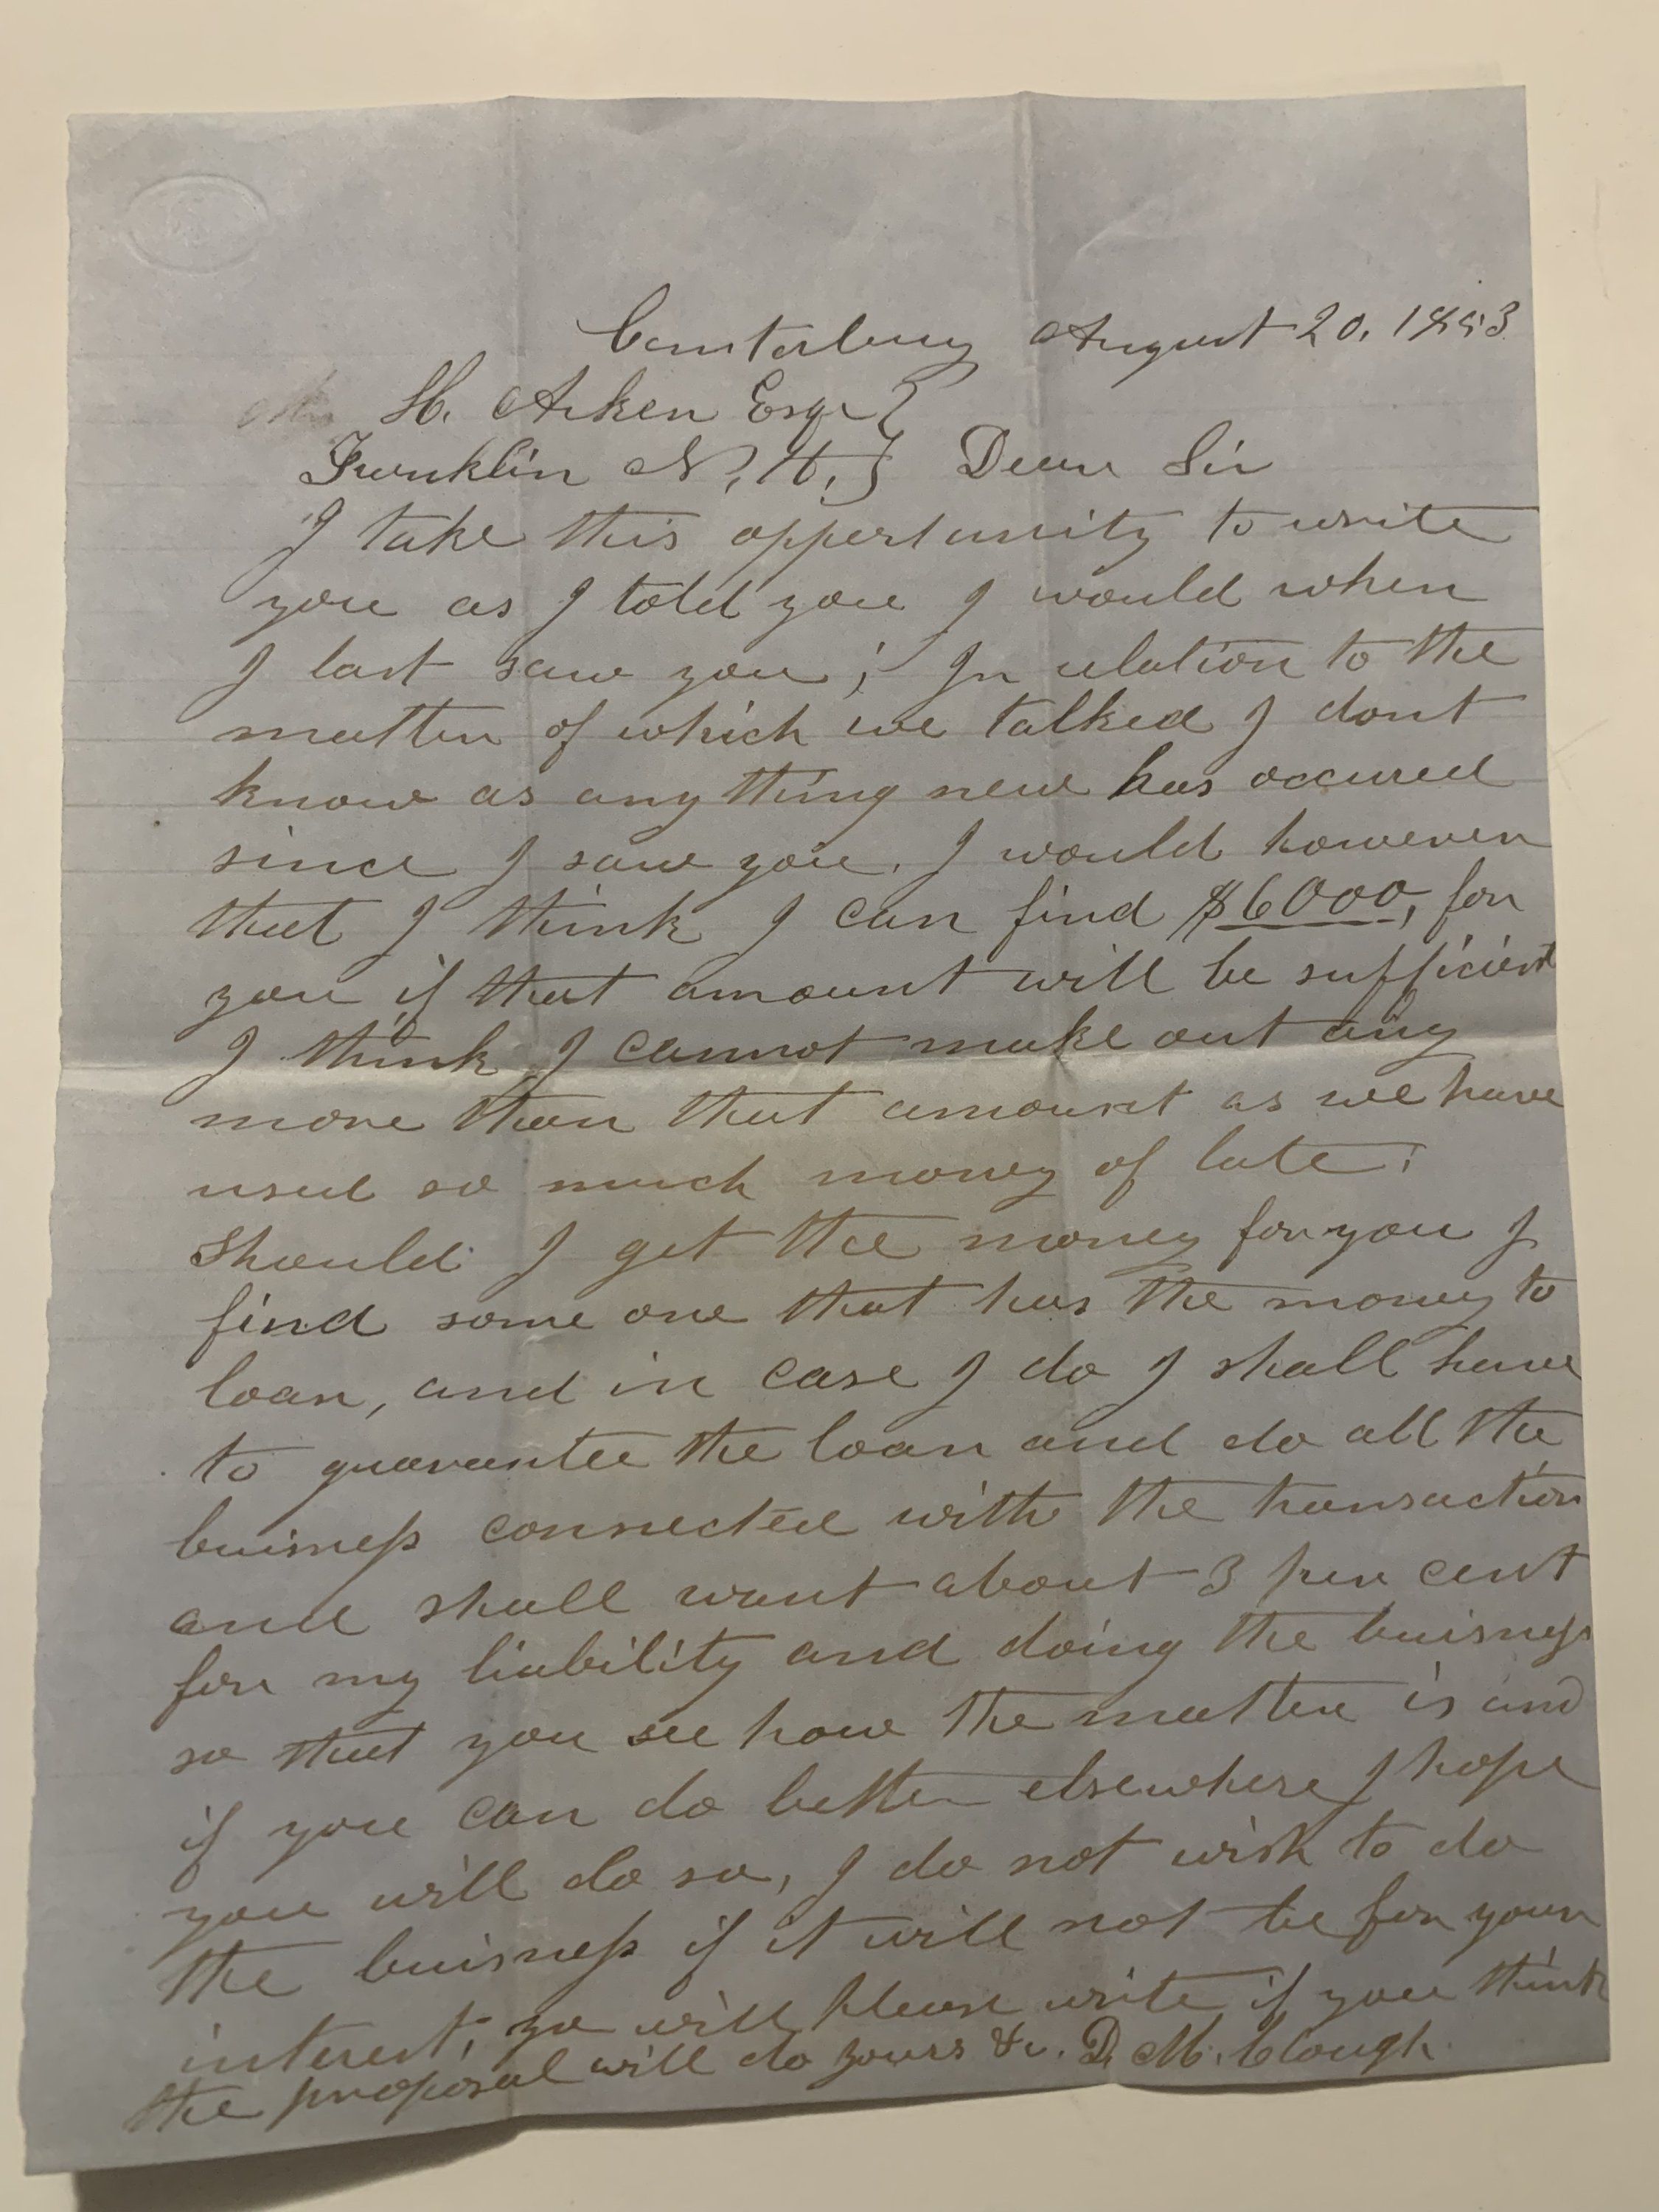 Canterbury August 20, 1853
H. Aiken Esqr
Franklin N. H. Dear Sir
I take this oppertunity to write
you as I told you I would when
I last saw you; In relation to the
matter of which we talked I dont
know as any thing new has occured
since I saw you. I would however
that I think I can find $6000, for
you if that amount will be sufficient
I think I cannot make out any
more than that amount as we have
used so much money of late.
Should I get the money for you I
find some one that has the money to
loan, and in case I do I shall have
to guarantee the loan and do all the
buisness connected with the transaction
and shall want about 3 per cent
for my liability and doing the buisness
so that you see how the matter is and
if you can do better elsewhere I hope
you will do so, I do not wish to do
the buisness if it will not be for your
interest, yo will please write if you think
the proposal will do yours &c. D. M. Clough.